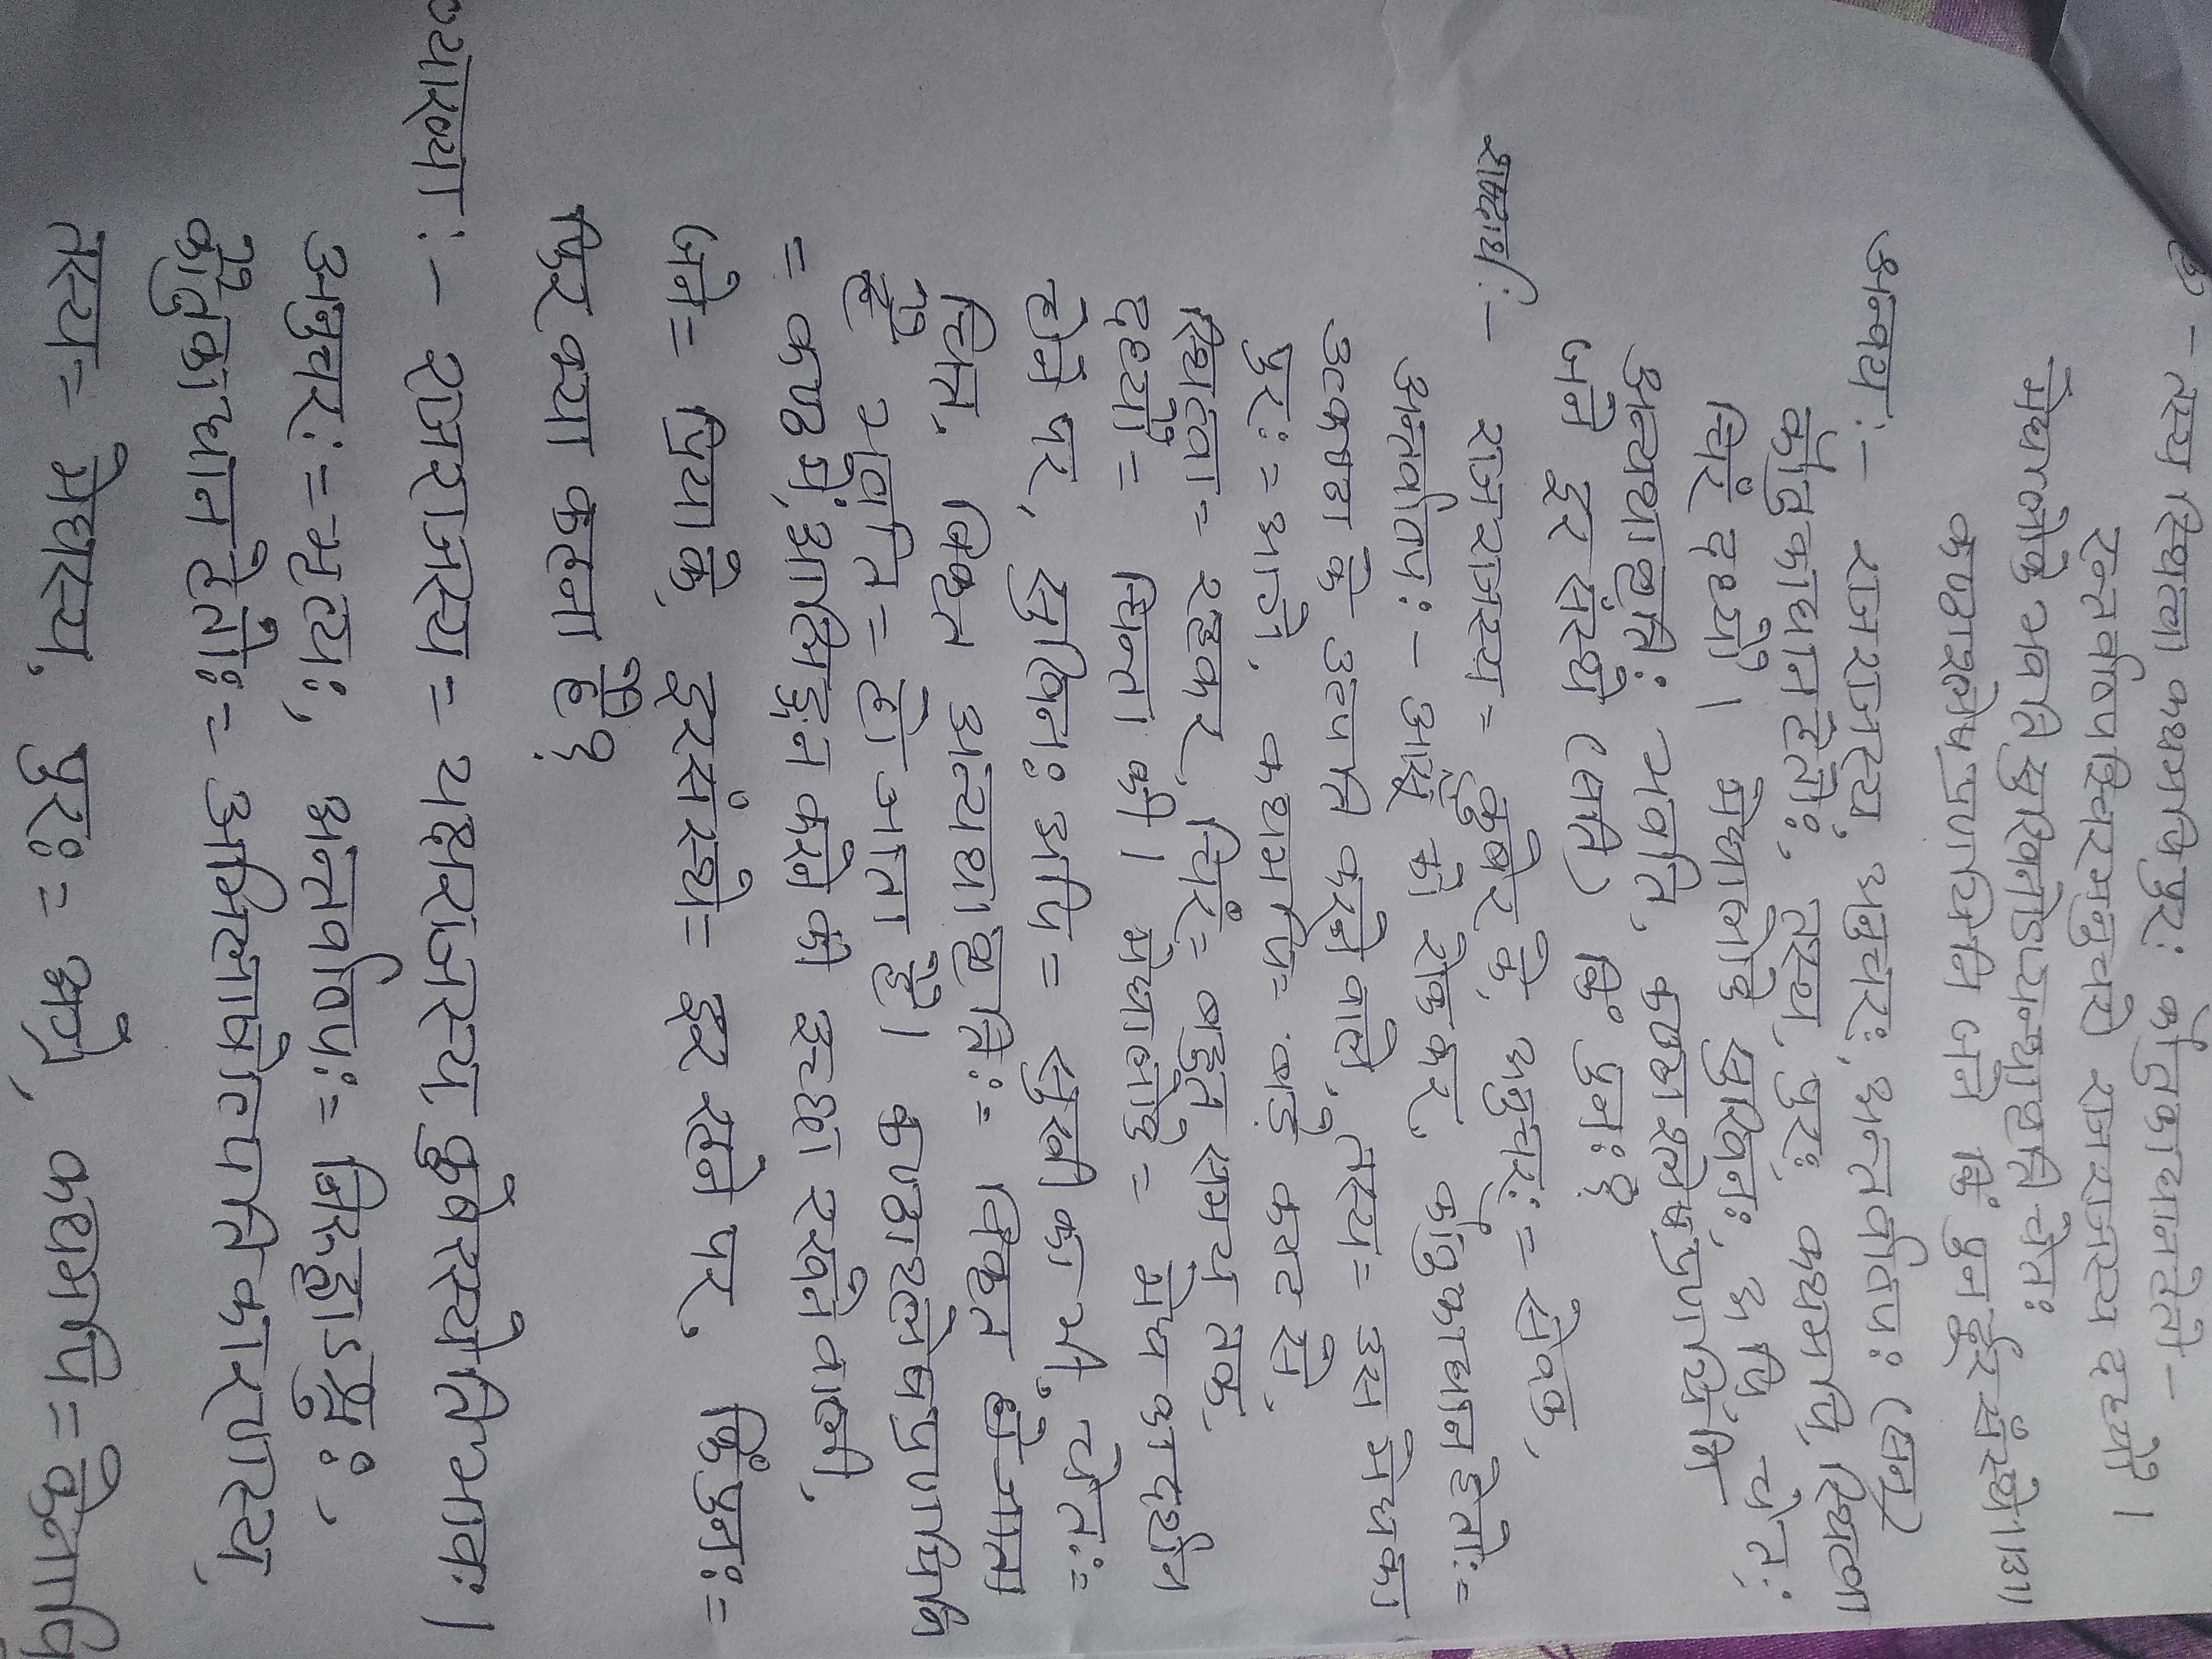 तस्य स्थित्वा कथमपि पुरः कौतुकाधानहेतो-
रन्तर्वाष्पश्चिरमनुचरो राजराजस्य दध्यौ।
मेघालोके भवति सुखिनोऽप्यन्यथावृत्ति चेतः
कण्ठाश्लेषप्रणयिनि जने किं पुनर्दूरसंस्थे।।3।।
अन्वयः- राजराजस्य, अनुचरः, अन्तर्वाष्पः (सन्)
कौतुकाधानहेतोः, तस्य, पुरः, कथमपि, स्थित्वा
चिरं दध्यौ। मेघालोके सुखिनः, अपि, चेतः
अन्यथावृत्तिः भवति, कण्ठाश्लेषप्रणयिनि
जने दूरसंस्थे (सति) किं पुनः?
शब्दार्थः- राजराजस्य = कुबेर के, अनुचरः = सेवक,
अन्तर्वाष्पः- आंसू को रोककर, कौतुकाधानहेतोः=
उत्कण्ठा के उत्पत्ति करने वाले, तस्य= उस मेघ का
पुरः = आगे, कथमपि= बड़े कष्ट से,
स्थित्वा= रहकर, चिरं= बहुत समय तक,
दध्यौ= चिन्ता की। मेघालोके= मेघ का दर्शन
होने पर, सुखिनः अपि= सुखी का भी, चेतः=
चित्त, अन्यथावृत्तिः= विकृत
भवति= हो जाता है। कण्ठाश्लेषप्रणयिनि
= कण्ठ में आलिङ्गन करने की इच्छा रखने वाली,
जने= प्रिया के, दूरसंस्थे= दूर रहने पर, किं पुनः=
फिर क्या कहना है?
व्याख्या:- राजराजस्य= यक्षराजस्य कुबेरस्येति भावः।
अनुचरः=भृत्यः, अन्तर्वाष्पः= निरुद्धाऽश्रुः,
कौतुकाधानहेतोः= अभिलाषोत्पत्तिकारणस्य,
तस्य= मेघस्य, पुरः= अग्रे, कथमपि=केनापि